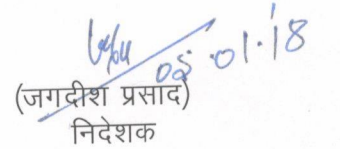 05.01.18
(जगदीश प्रसाद)
निदेशक